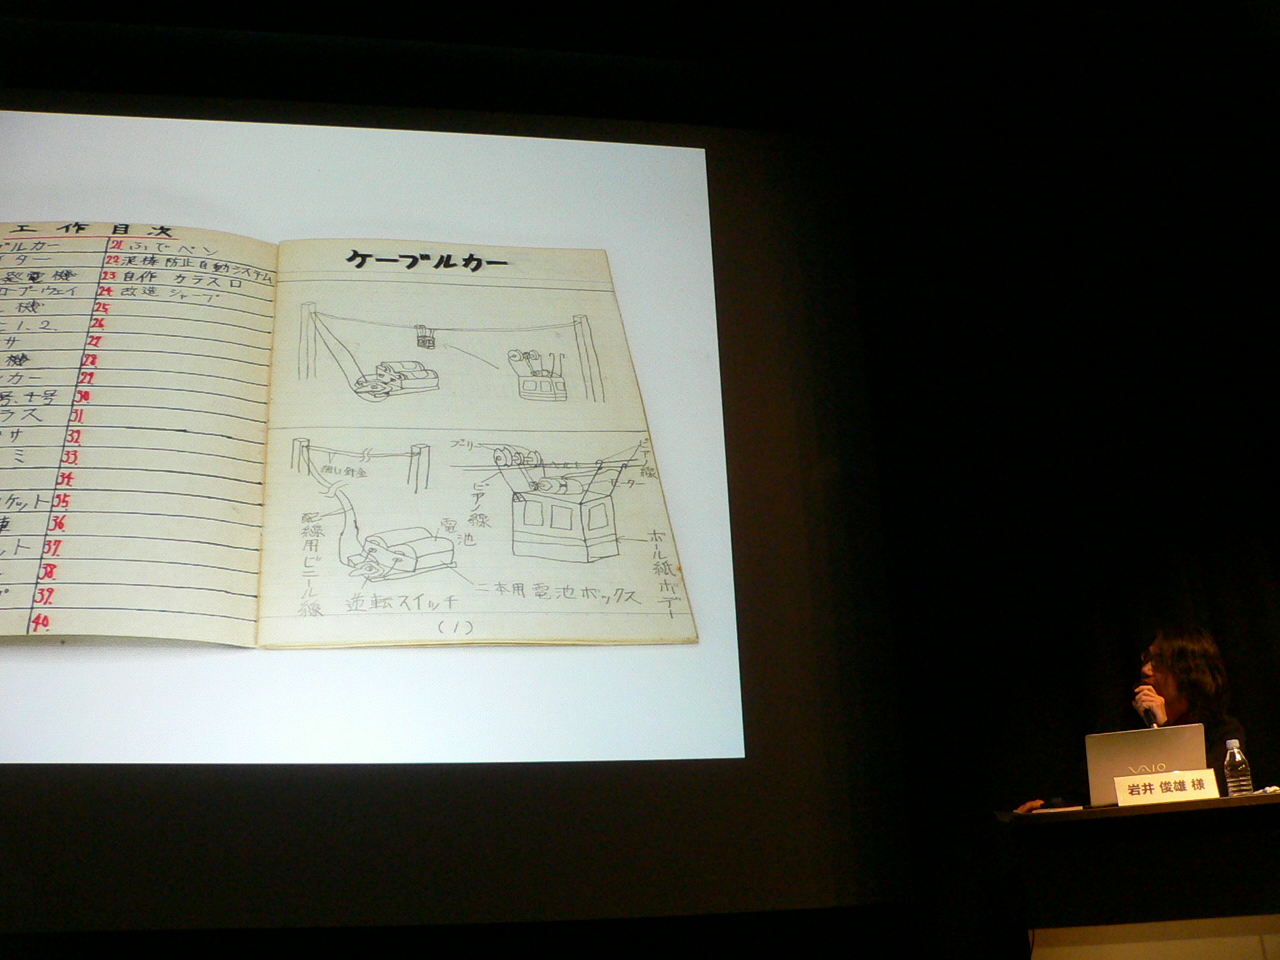 工作目次
ブルカー
イター
発電機
ロープウェイ
機
1.2.
サ
機
ンカー
号、十号
ラス
サ
ミ
ケット
車
ット
21.ふでペン
22.泥棒防止自動システム
23.自作 カラスロ
24.改造 シャープ
25.
26.
27.
28.
29.
30.
31.
32.
33.
34.
35.
36.
37.
38.
39.
40.
ケーブルカー
プーリー
ピアノ線
モーター
ピアノ線
配線用ビニール線
電池
ボール紙ボデー
逆転スイッチ
二本用電池ボックス
(1)
VAIO
岩井 俊雄 様